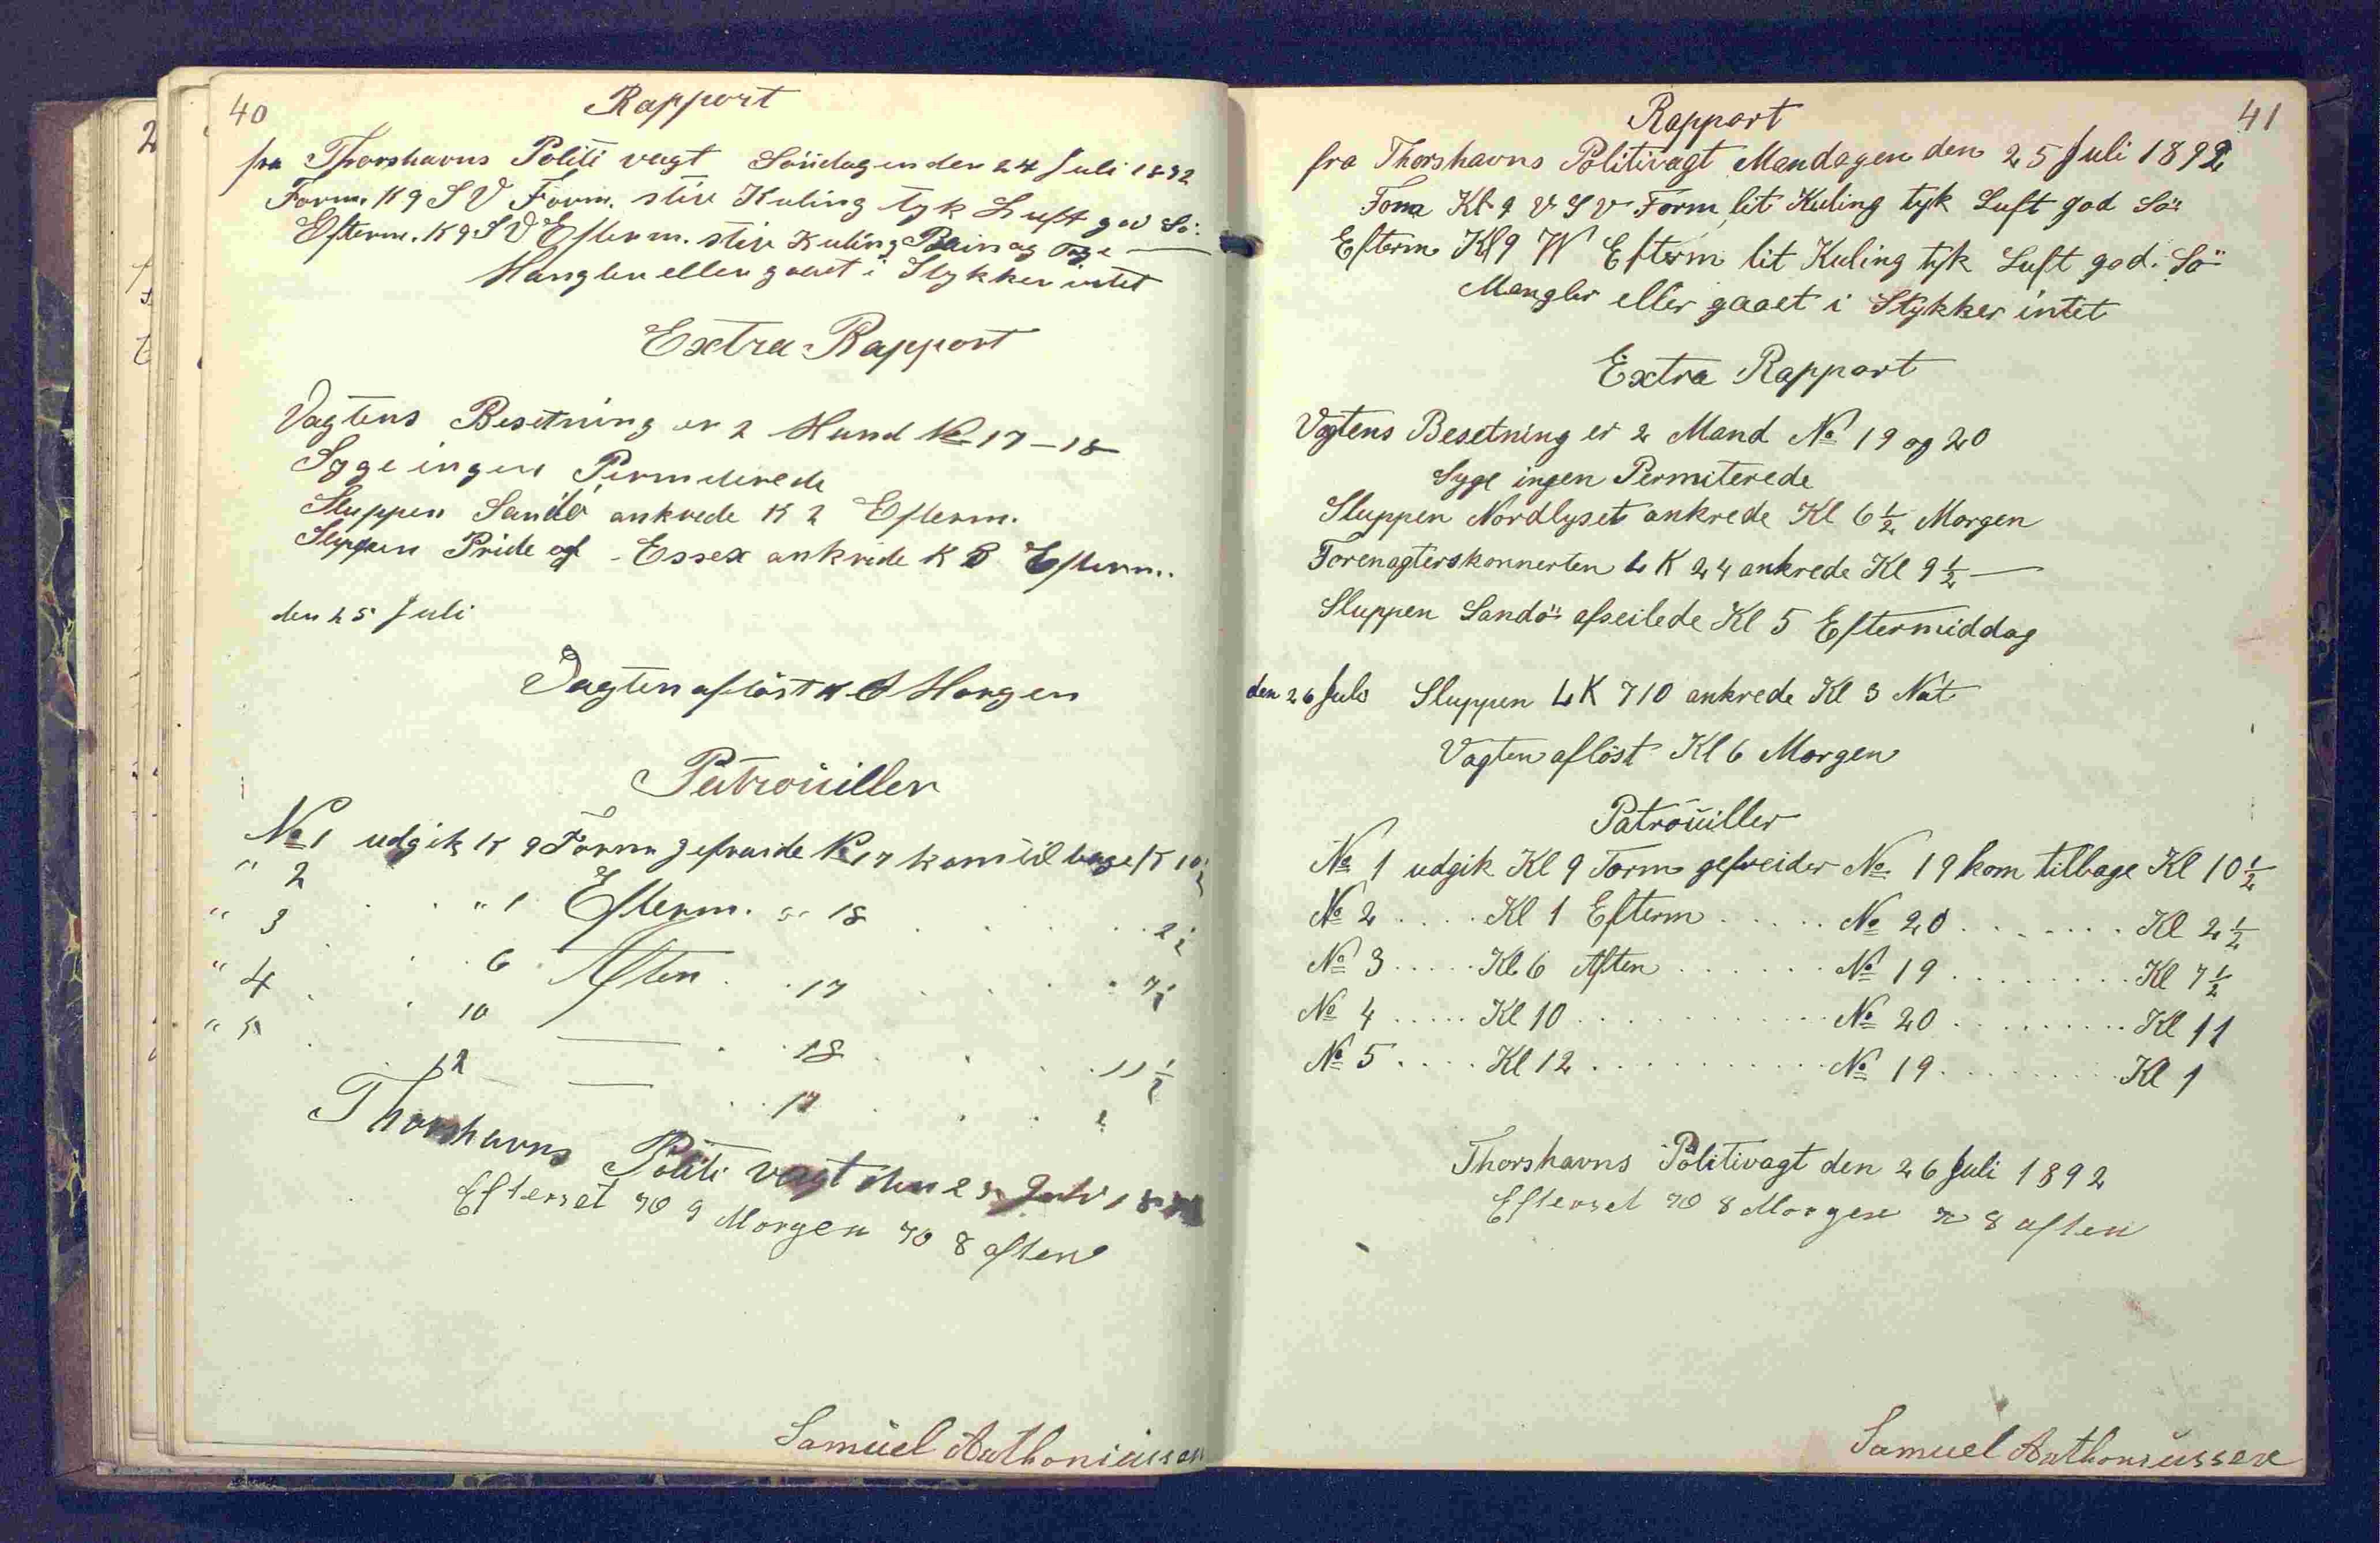 40
Rapport
fra Thorshavns Politi vagt Söndagen den 24 Juli 1892
Form. K 9 S V Form. stiv Kuling tyk Luft god Sö
Efterm. K 9 S V Efterm. stiv Kuling og
Mangler eller gaaet i Stykker intet
Extra Rapport
Vagtens Besetning er 2 Mand No 17-18
Syge ingen Permiterede
Sluppen Sandö ankrede K 2 Efterm.
Sluppen Pride of Essex ankrede K 3 Efterm.
den 25 Juli
Vagten aflöst K 6 Morgen
Patrouiller
No 1 udgik K 9 Form gefraide No 17 kom tilbage K 10½
" 2 . . " 1 Efterm. " 18 . . . . 2½
" 3 . . 6 Aften . . 17 . . . . 7½
" 4 . . 10 — . . 18 . . . 11½
" 5 . . 12 — . . 17 . . .
Thorshavns Politi vagt den 25 Juli
Efterset 9 Morgen 8 aften
Samüel Anthoniussen
41
Rapport
fra Thorshavns Politivagt Mandagen den 25 Juli 1892
Form Kl 9 V S V Form lit Kuling tyk Luft god Sö
Efterm Kl 9 W Efterm lit Kuling tyk Luft god. Sö
Mangler eller gaaet i Stykker intet
Extra Rapport
Vagtens Besetning er 2 Mand No 19 og 20
Syge ingen Permiterede
Sluppen Nordlyset ankrede Kl 6½ Morgen
Forenagterskonnerten LK 24 ankrede Kl 9½ —
Sluppen Sandö afseilede Kl 5 Eftermiddag
den 26 Juli Sluppen LK 710 ankrede Kl 3 Nat
Vagten aflöst Kl 6 Morgen
Patroüiller
No 1 udgik Kl 9 Form gefreider No 19 kom tilbage Kl 10½
No 2 .... Kl 1 Efterm ..... No 20 ....... Kl 2½
No 3 ..... Kl 6 Aften ...... No 19 ........ Kl 7½
No 4 ..... Kl 10 ........... No 20 ......... Kl 11
No 5 .... Kl 12 ........... No 19 ........ Kl 1
Thorshavns Politivagt den 26 Juli 1892
Efterset 8 Morgen 8 aften
Samuel Anthoniussen